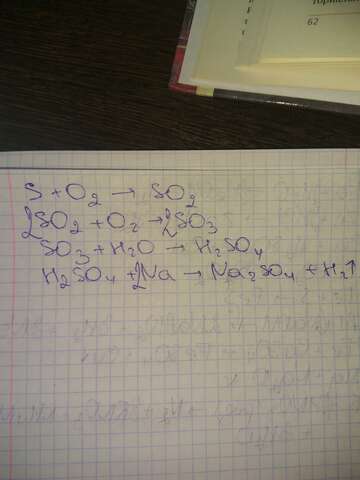 62
S + O₂ → SO₂
2SO₂ + O₂ → 2SO₃
SO₃ + H₂O → H₂SO₄
H₂SO₄ + 2Na → Na₂SO₄ + H₂↑